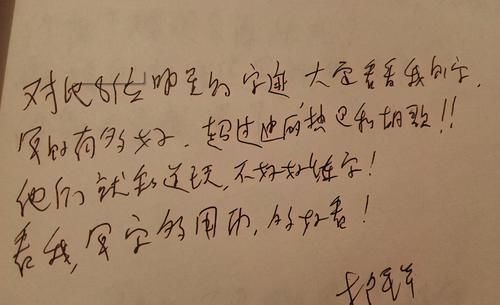 对比8位明星的字迹 大家看看我的字,
写的有多好, 超过迪丽热巴和胡歌!!
他们就知道玩, 不好好练字!
看我, 写字多用功, 多好看!